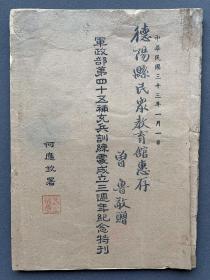 中華民國三十三年一月一日
德陽縣民眾教育館惠存
曾魯敬贈
軍政部第四十五補充兵訓練處成立三週年紀念特刊
何應欽署